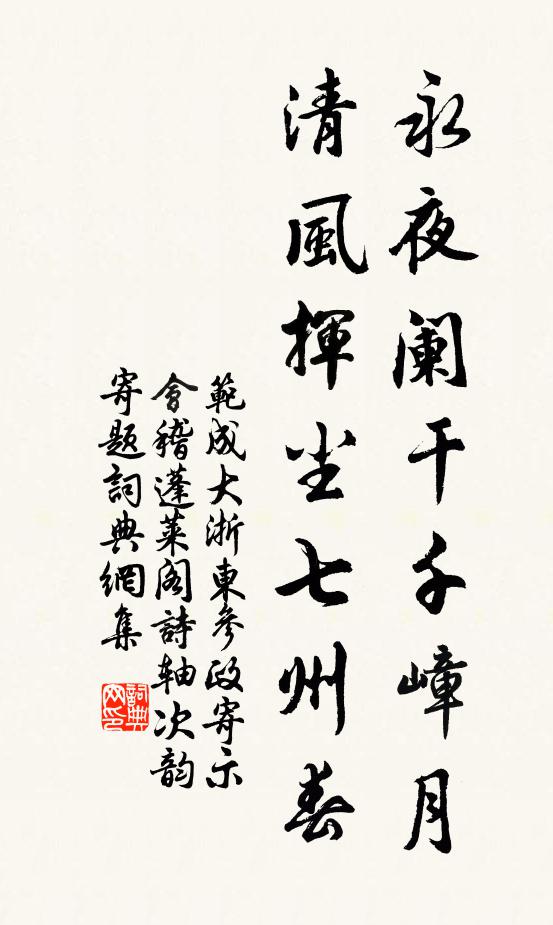 永夜阑干千嶂月
清風揮尘七州春
範成大浙東參政寄示
會稽蓬萊阁詩轴次韵
寄題詞典網集
詞典
网印